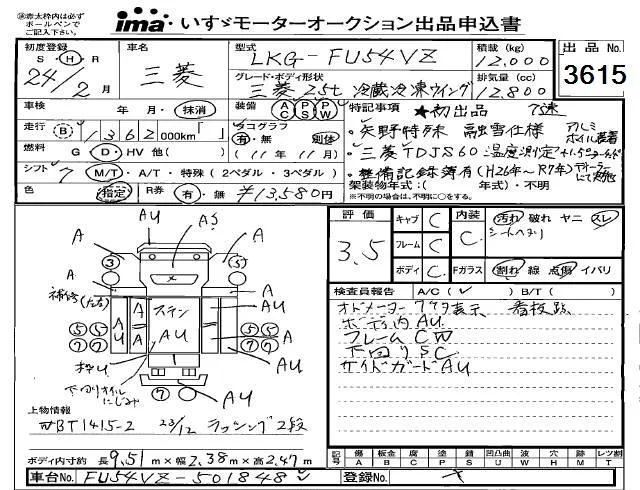 ※赤太枠内は必ず
ボールペンで
ご記入下さい。
ima いすゞモーターオークション出品申込書
初度登録 S・H・R 24/2月
車名 三菱
型式 LKG-FU54VZ
積載(kg) 12,000
出品No. 3615
グレード・ボディ形状 三菱 25t 冷蔵冷凍ウイング
排気量(cc) 12,800
車検 年・月・抹消
装備 AC PS PW
特記事項 ★初出品 7速
走行 B 1362 000km「 」
タコグラフ 有・無 別体
(11年11月)
・矢野特殊 融雪仕様 アルミホイル装着
燃料 G・D・HV 他( )
・三菱TDJS60温度測定
シフト 7 M/T・A/T・特殊(2ペダル・3ペダル)
・整備記録簿有(H26年～R7年)
色 指定 R券 有・無 ¥13,580円
架装物年式:( 年式)・不明
※不明の場合は、不明に○をする。
評価 3.5
キャブ C
フレーム C
ボディ C
内装 C
汚れ 破れ ヤニ スレ
Fガラス 割れ 線 点傷 イバリ
検査員報告 A/C( ✓ ) B/T( )
オドメーター
表示 看板跡
ボディ内AU
フレームCW
下回りSC
サイドガードAU
AU AS
A A
③ ⑤
A A
補修
ステン
AU
AU
A
A
A
AU
AU
⑤⑤ ⑤⑤
⑦⑦ ⑦⑦
枠U
下回りオイルにじみ
⑦ AU
上物情報
BT1415-2 23/12 ラッシング2段
ボディ内寸約 長9.51m×幅2.38m×高2.47m
記号 傷A 板金B 腐C 塗P 錆S 凹凸曲U 波W 穴H 跡M レツ割T
車台No. FU54VZ-501848
登録No.